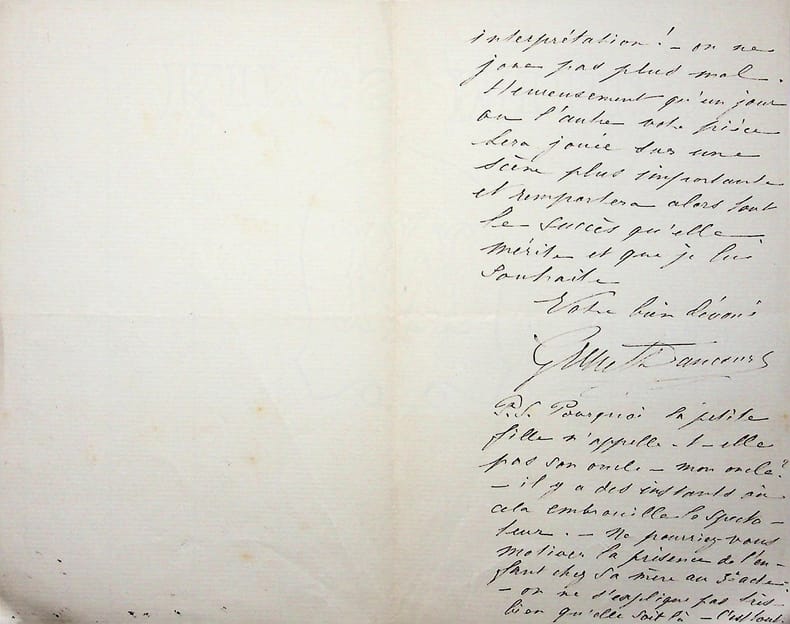 interprétation! – on ne
joue pas plus mal.
Heureusement qu'un jour
ou l'autre votre pièce
sera jouée sur une
scène plus importante
et remportera alors tout
le succès qu'elle
mérite et que je lui
souhaite
Votre bien dévoué
Grenet Dancourt
P.S. Pourquoi la petite
fille n'appelle-t-elle
pas son oncle – mon oncle?
– il y a des instants où
cela embrouille le specta-
teur. – Ne pourriez-vous
motiver la présence de l'en-
fant chez sa mère au
– on ne s'explique pas très
bien qu'elle soit là – c'est tout.